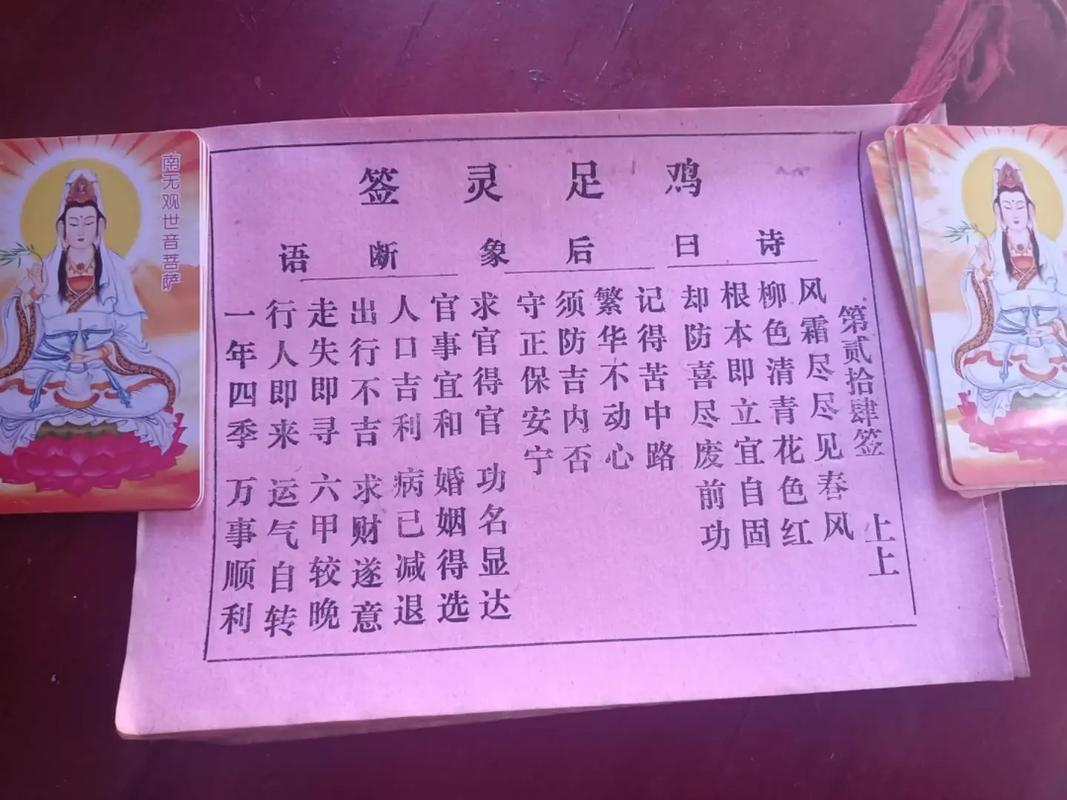 鸡足灵签
第贰拾肆签 上上
诗曰
风霜尽尽见春风
柳色清青花色红
根本即立宜自固
却防喜尽废前功
后象
记得苦中路
繁华不动心
须防吉内否
守正保安宁
断语
求官得官 功名显达
官事宜和 婚姻得选
人口吉利 病已减退
出行不吉 求财遂意
走失即寻 六甲较晚
行人即来 运气自转
一年四季 万事顺利
南无观世音菩萨